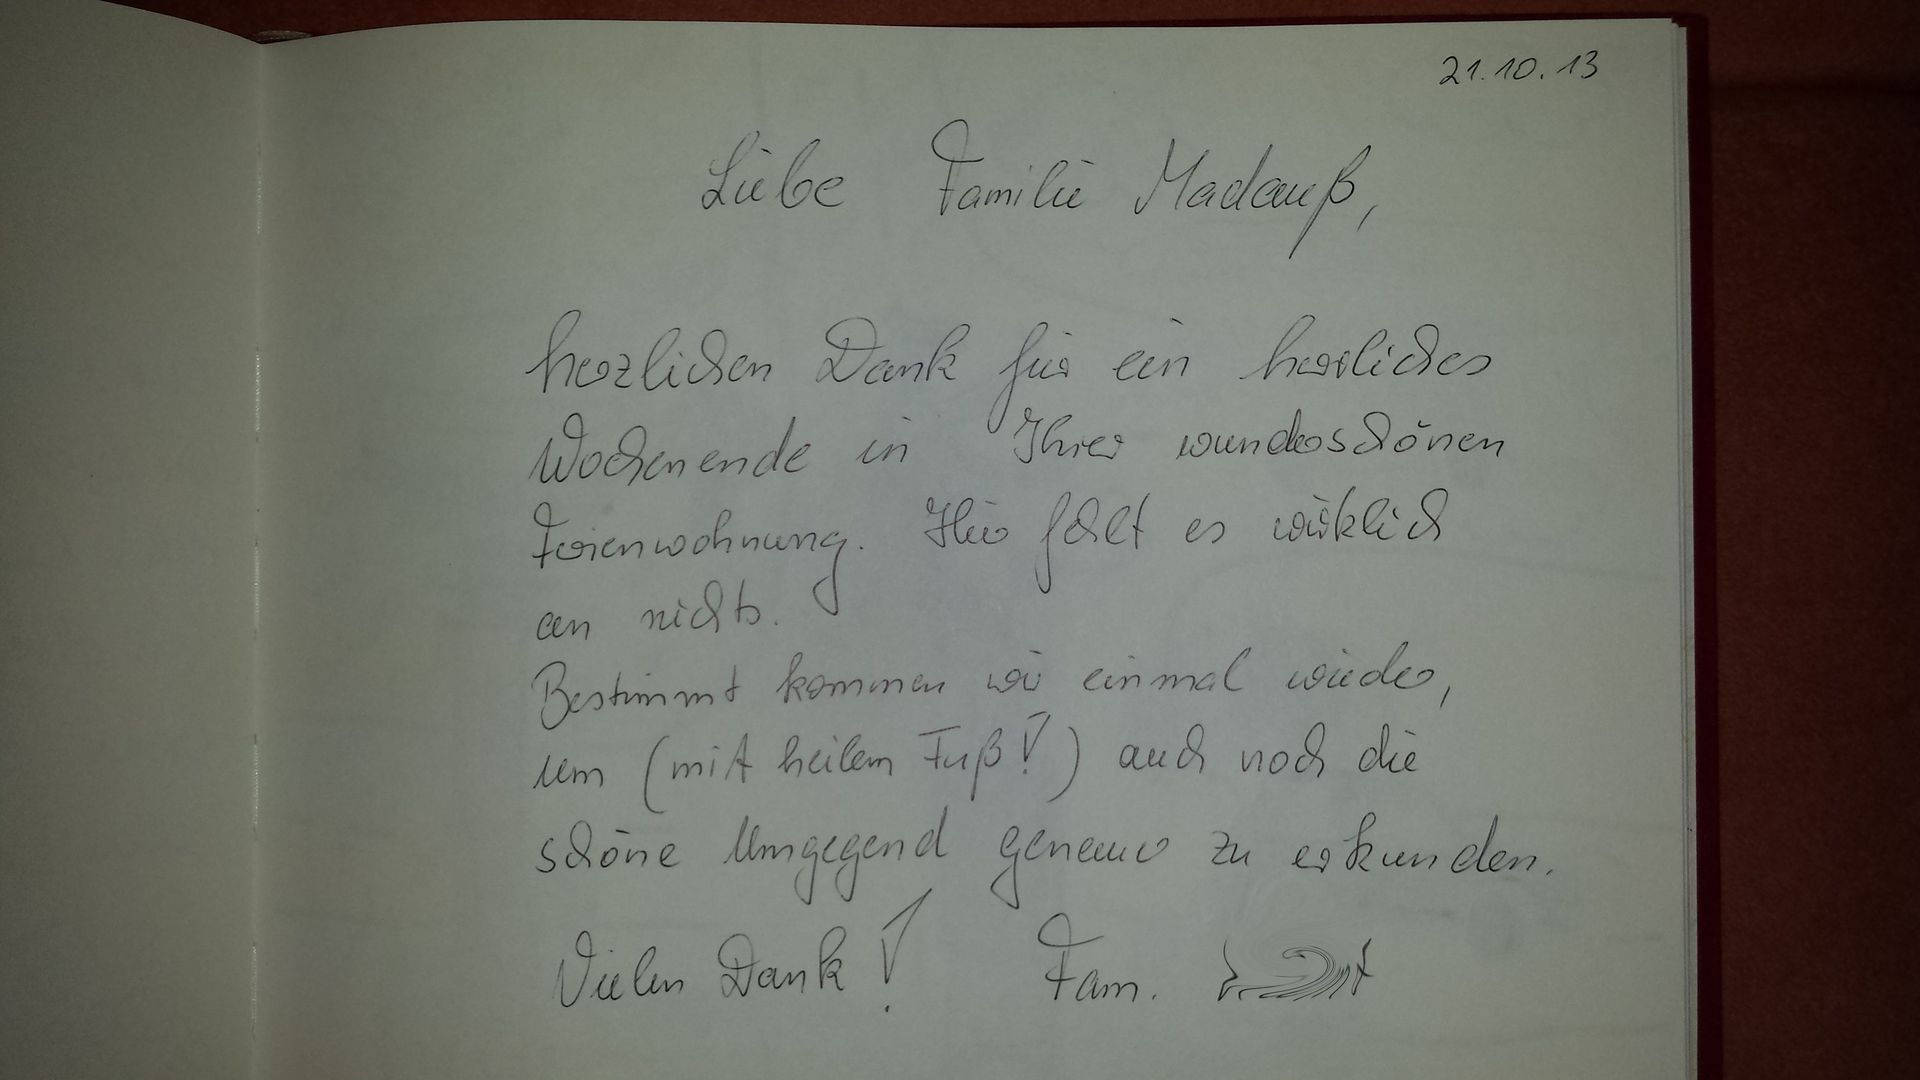 21.10.13
Liebe Familie Madauß,
herzlichen Dank für ein herrliches
Wochenende in Ihrer wunderschönen
Ferienwohnung. Hier fehlt es wirklich
an nichts.
Bestimmt kommen wir einmal wieder,
um (mit heilem Fuß!) auch noch die
schöne Umgegend genauer zu erkunden.
Vielen Dank! Fam.